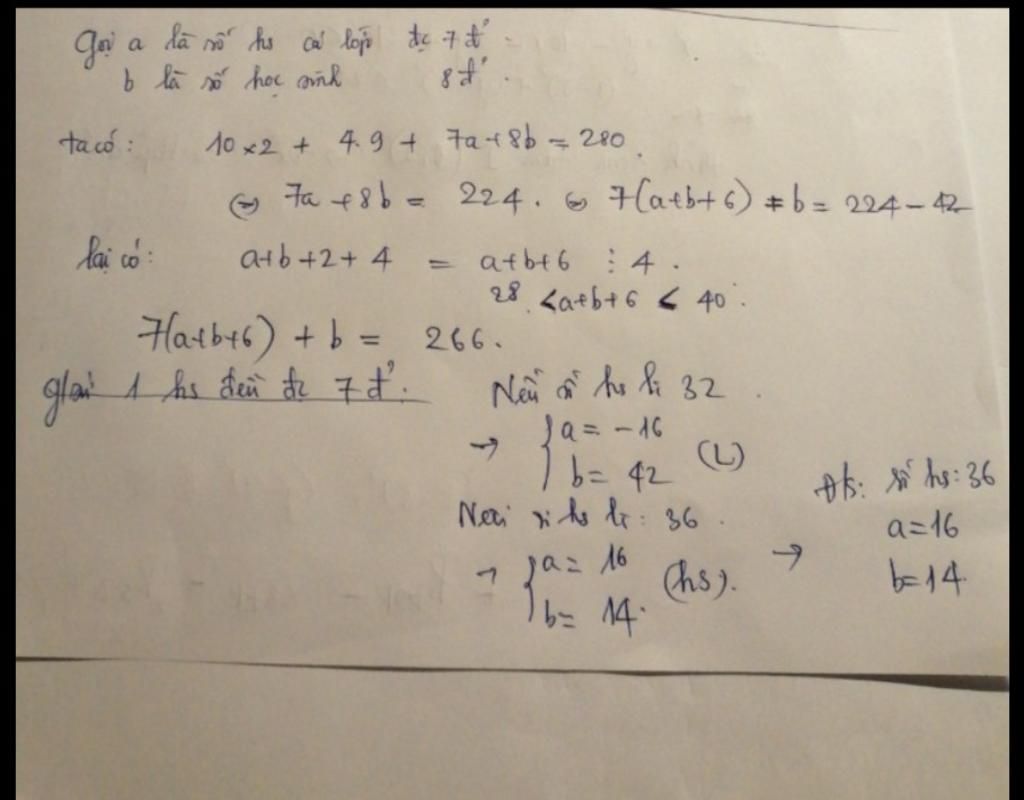 Gọi a là số hs cả lớp đc 7đ'
b là số học sinh 8đ'.
ta có: 10×2 + 4.9 + 7a+8b = 280.
⇔ 7a+8b = 224. ⇔ 7(a+b+6) + b = 224-42
lại có: a+b+2+4 = a+b+6 ⋮ 4.
28 < a+b+6 < 40.
7(a+b+6) + b = 266.
1 hs đều đc 7đ'.
Nếu số hs là 32.
→ { a = -16
b = 42 (L)
số hs là: 36.
→ { a = 16
b = 14. (hs).
→ số hs: 36
a=16
b=14.